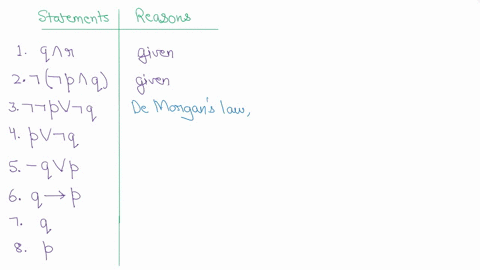 Statements Reasons
1. q∧r given
2. ¬(¬p∧q) given
3. ¬¬p∨¬q De Morgan's law,
4. p∨¬q
5. −q∨p
6. q→p
7. q
8. p